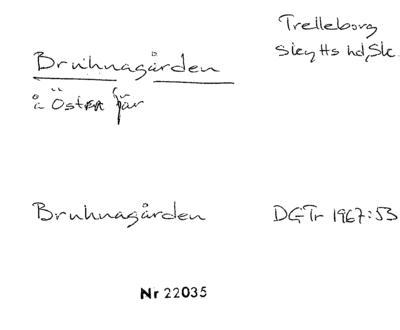 Trelleborg
Skytts hd, Sk.
Bruhnagården
å Öster fjär
Bruhnagården
DGTr 1967:53
Nr 22035